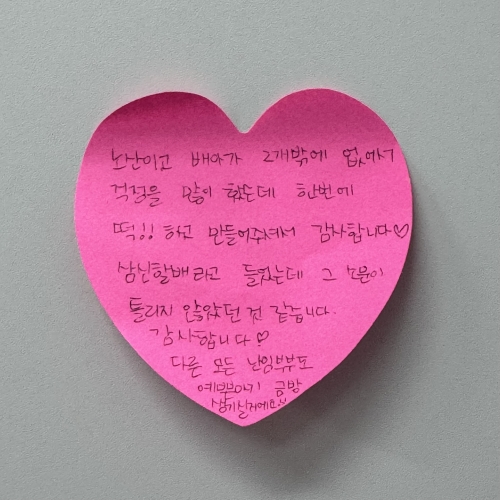 노산이고 배아가 2개밖에 없어서
걱정을 많이 했는데 한번에
떡!! 하고 만들어주셔서 감사합니다♡
삼신할배라고 들었는데 그 소문이
틀리지 않았던 것 같습니다.
감사합니다♡
다른 모든 난임부부도
예쁜아기 금방
생기실거예요